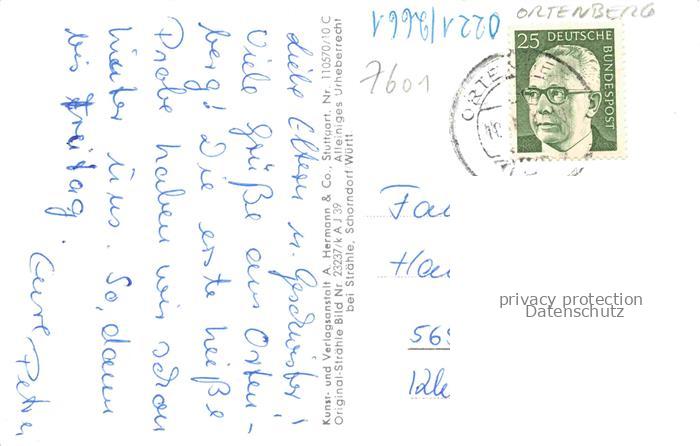 ORTENBERG
0221/2661
7601
25 DEUTSCHE
BUNDESPOST
ORTE
Liebe Eltern u. Geschwister!
Viele Grüße aus Orten-
berg! Die erste heiße
Probe haben wir schon
hinter uns. So, dann
bis Freitag.
Eure Petra
Kunst- und Verlagsanstalt A. Hermann & Co., Stuttgart. Nr. 110570/10 C
Original-Strähle Bild Nr. 23237/k A J 39 Alleiniges Urheberrecht
bei Strähle, Schorndorf Württ
Fa
Ha
56
privacy protection
Datenschutz